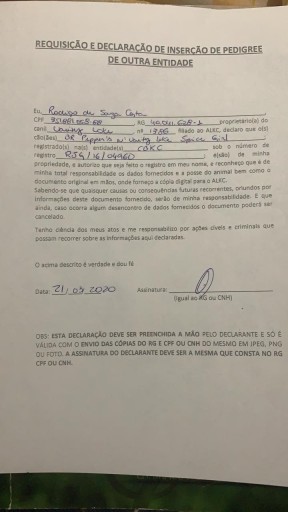 REQUISIÇÃO E DECLARAÇÃO DE INSERÇÃO DE PEDIGREE
DE OUTRA ENTIDADE
Eu, Rodrigo de Souza
CPF RG proprietário(a) do
canil nº 1756 filiado ao ALKC, declaro que o(s)
cão(ães)
registrado(s) na(s) entidade(s) CBKC sob o número de
registro RJS/16/04960 é(são) de minha
propriedade, e autorizo que seja feito o registro em meu nome, e reconheço que é da
minha total responsabilidade os dados fornecidos e a posse do animal bem como o
documento original em mãos, onde forneço a cópia digital para o ALKC.
Sabendo-se que quaisquer causas ou consequências futuras recorrentes, oriundos por
informações deste documento fornecido, serão de minha responsabilidade. E que
ainda, caso ocorra algum desencontro de dados fornecidos o documento poderá ser
cancelado.
Tenho ciência dos meus atos e me responsabilizo por ações cíveis e criminais que
possam recorrer sobre as informações aqui declaradas.
O acima descrito é verdade e dou fé
Data: 21/09/2020 Assinatura:
(Igual ao RG ou CNH)
OBS: ESTA DECLARAÇÃO DEVE SER PREENCHIDA A MÃO PELO DECLARANTE E SÓ É
VÁLIDA COM O ENVIO DAS CÓPIAS DO RG E CPF OU CNH DO MESMO EM JPEG, PNG
OU FOTO. A ASSINATURA DO DECLARANTE DEVE SER A MESMA QUE CONSTA NO RG
CPF OU CNH.